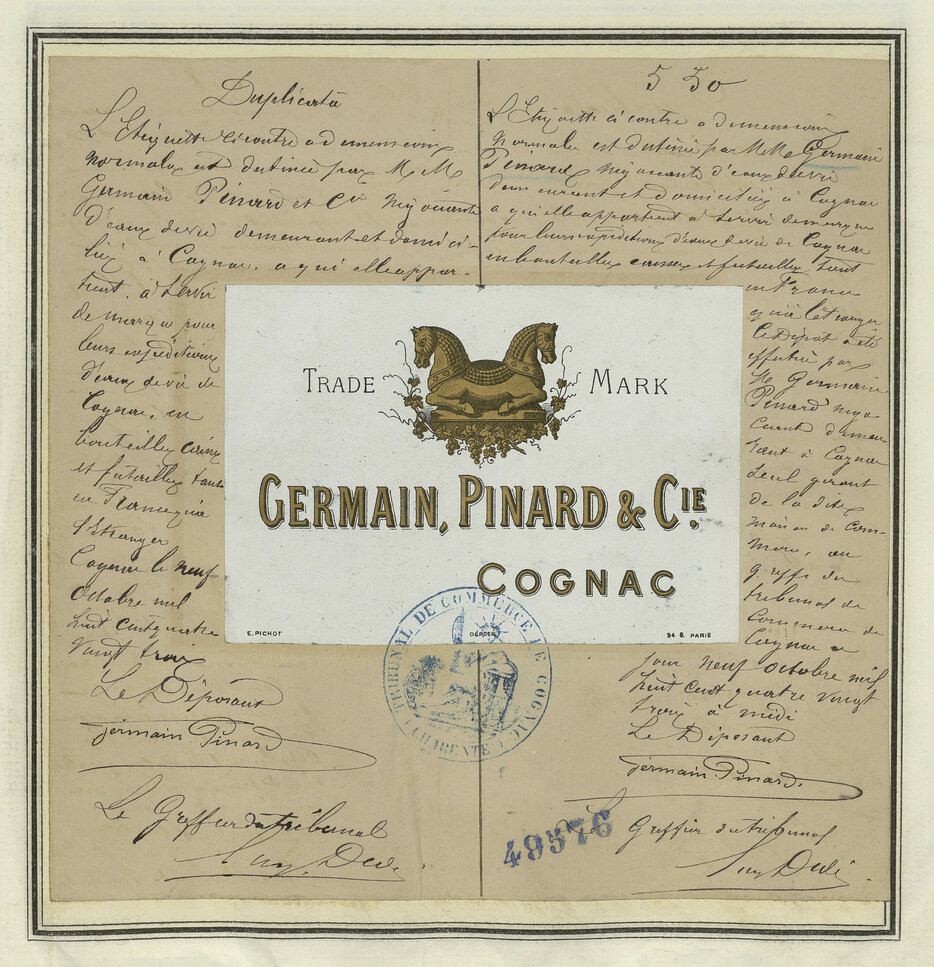 Duplicata
L'Etiquette ci contre a dimension
normale est destinée par M. M.
Germain Pinard et Cie négociants
d'eaux de vie demeurant et domici-
liés à Cognac, a qui elle appar-
tient, à servir
de marque pour
leurs expéditions
d'eaux de vie de
Cognac, en
bouteilles caisses
et futailles tant
en France qu'à
l'Etranger
Cognac le neuf
Octobre mil
huit cent quatre
vingt trois
Le Déposant
Germain Pinard
Le Greffier du tribunal
5 30
L'Etiquette ci contre a dimension
normale est destinée par M. M. Germain
Pinard négociants d'eaux de vie
demeurant et domiciliés à Cognac
a qui elle appartient à servir de marque
pour leurs expéditions d'eaux de vie de Cognac
en bouteilles caisses et futailles tant
en France
qu'à l'étranger
Le Dépôt a été
effectué par
M. Germain
Pinard négo-
ciant demeu-
rant à Cognac
seul gérant
de la dite
maison de Com-
merce, au
greffe du
tribunal de
Commerce de
Cognac ce
jour neuf octobre mil
huit cent quatre vingt
trois à midi
Le Déposant
Germain Pinard.
Le Greffier du tribunal
TRADE MARK
GERMAIN, PINARD & CIE.
COGNAC
E. PICHOT
DÉPOSÉ
94 B. PARIS
TRIBUNAL DE COMMERCE DE COGNAC
CHARENTE
49576